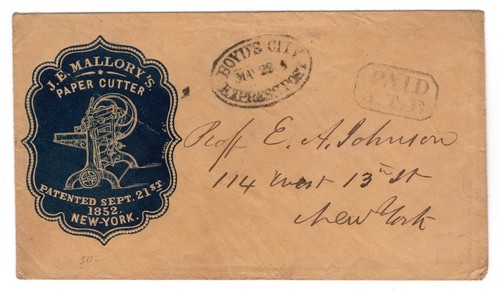 J.E. MALLORY'S
PAPER CUTTER
PATENTED SEPT. 21ST
1852.
NEW-YORK.
BOYD'S CITY
MAY 22
EXPRESS POST
PAID
Proff E. A. Johnson
114 West 13th St
New York
50-